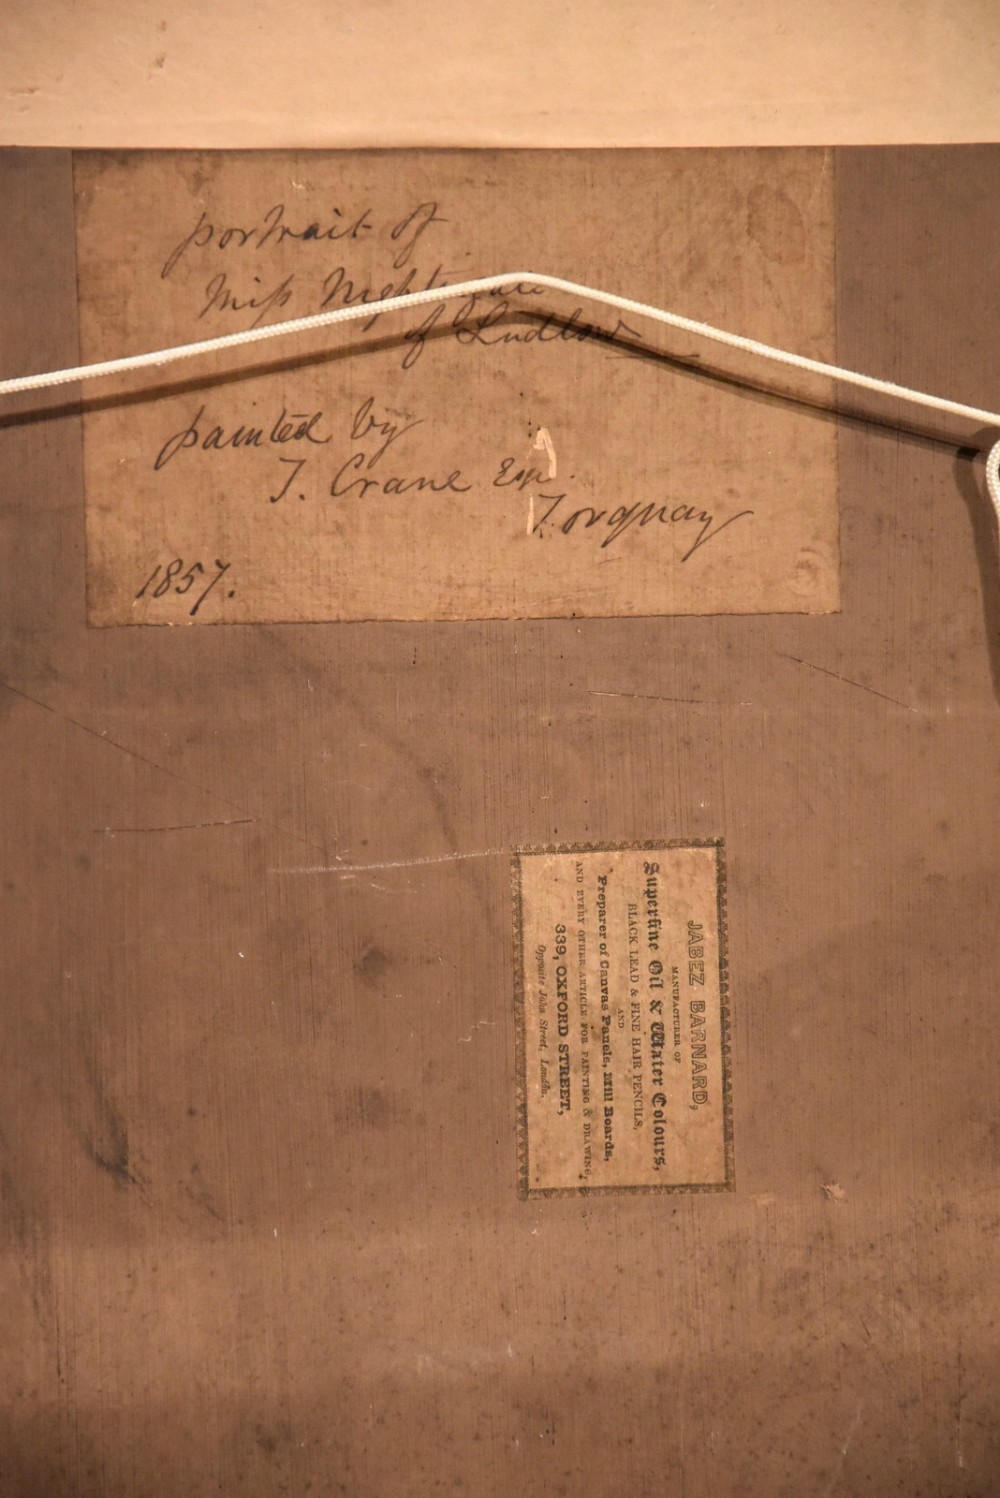 portrait of
Miss Nightingale
of Ludlow
painted by
T. Crane Esqr.
Torquay
1857.
JABEZ BARNARD,
MANUFACTURER OF
Superfine Oil & Water Colours,
BLACK LEAD & FINE HAIR PENCILS,
AND
Preparer of Canvas Panels, Mill Boards,
AND EVERY OTHER ARTICLE FOR PAINTING & DRAWING,
339, OXFORD STREET,
Opposite John Street, London.